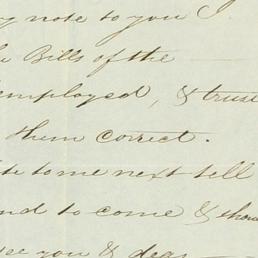 y note to you I
Bills of the
employed, & trust
them correct.
to me next tell
nd to come & sho
see you & dear